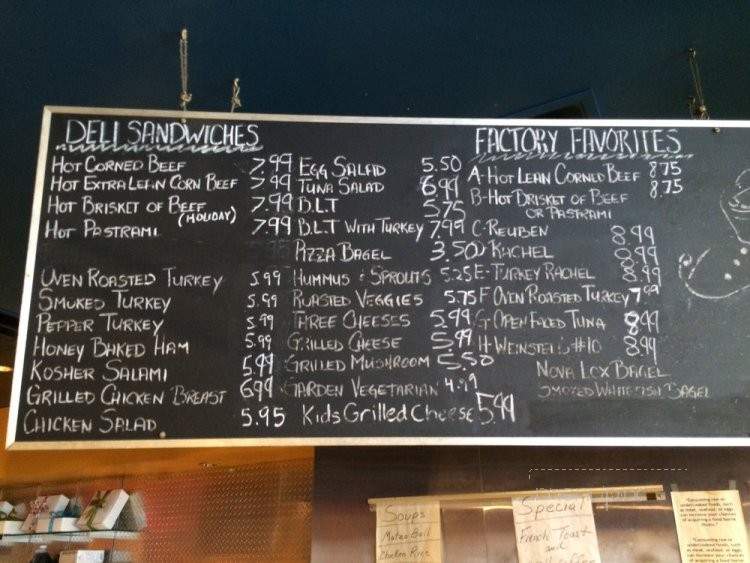 DELI SANDWICHES
HOT CORNED BEEF 7.99
HOT EXTRA LEAN CORN BEEF 7.99
HOT BRISKET OF BEEF 7.99
(HOLIDAY)
HOT PASTRAMI 7.99
OVEN ROASTED TURKEY 5.99
SMOKED TURKEY 5.99
PEPPER TURKEY 5.99
HONEY BAKED HAM 5.99
KOSHER SALAMI 5.99
GRILLED CHICKEN BREAST 6.99
CHICKEN SALAD 5.95
EGG SALAD 5.50
TUNA SALAD 6.99
B.L.T 5.75
B.L.T WITH TURKEY 7.99
PIZZA BAGEL 3.50
HUMMUS & SPROUTS 5.25
ROASTED VEGGIES 5.75
THREE CHEESES 5.99
GRILLED CHEESE 5.99
GRILLED MUSHROOM 5.50
GARDEN VEGETARIAN 4.99
Kids Grilled Cheese 5.99
FACTORY FAVORITES
A-HOT LEAN CORNED BEEF 8.75
B-HOT BRISKET OF BEEF 8.75
OR PASTRAMI
C-REUBEN 8.99
D RACHEL 8.99
E-TURKEY RACHEL 8.99
F OVEN ROASTED TURKEY 7.99
G OPEN FACED TUNA 8.99
H WEINSTEIN'S #10 8.99
NOVA LOX BAGEL
SMOKED WHITEFISH BAGEL
Soups
Matzo Ball
Chicken Rice
Special
French Toast
and
"Consuming raw or
undercooked foods, such
as meat, seafood, or eggs
can increase your chances
of acquiring a food borne
illness."
"Consuming raw or
undercooked foods, such
as meat, seafood, or eggs
can increase your chances
of acquiring a food borne